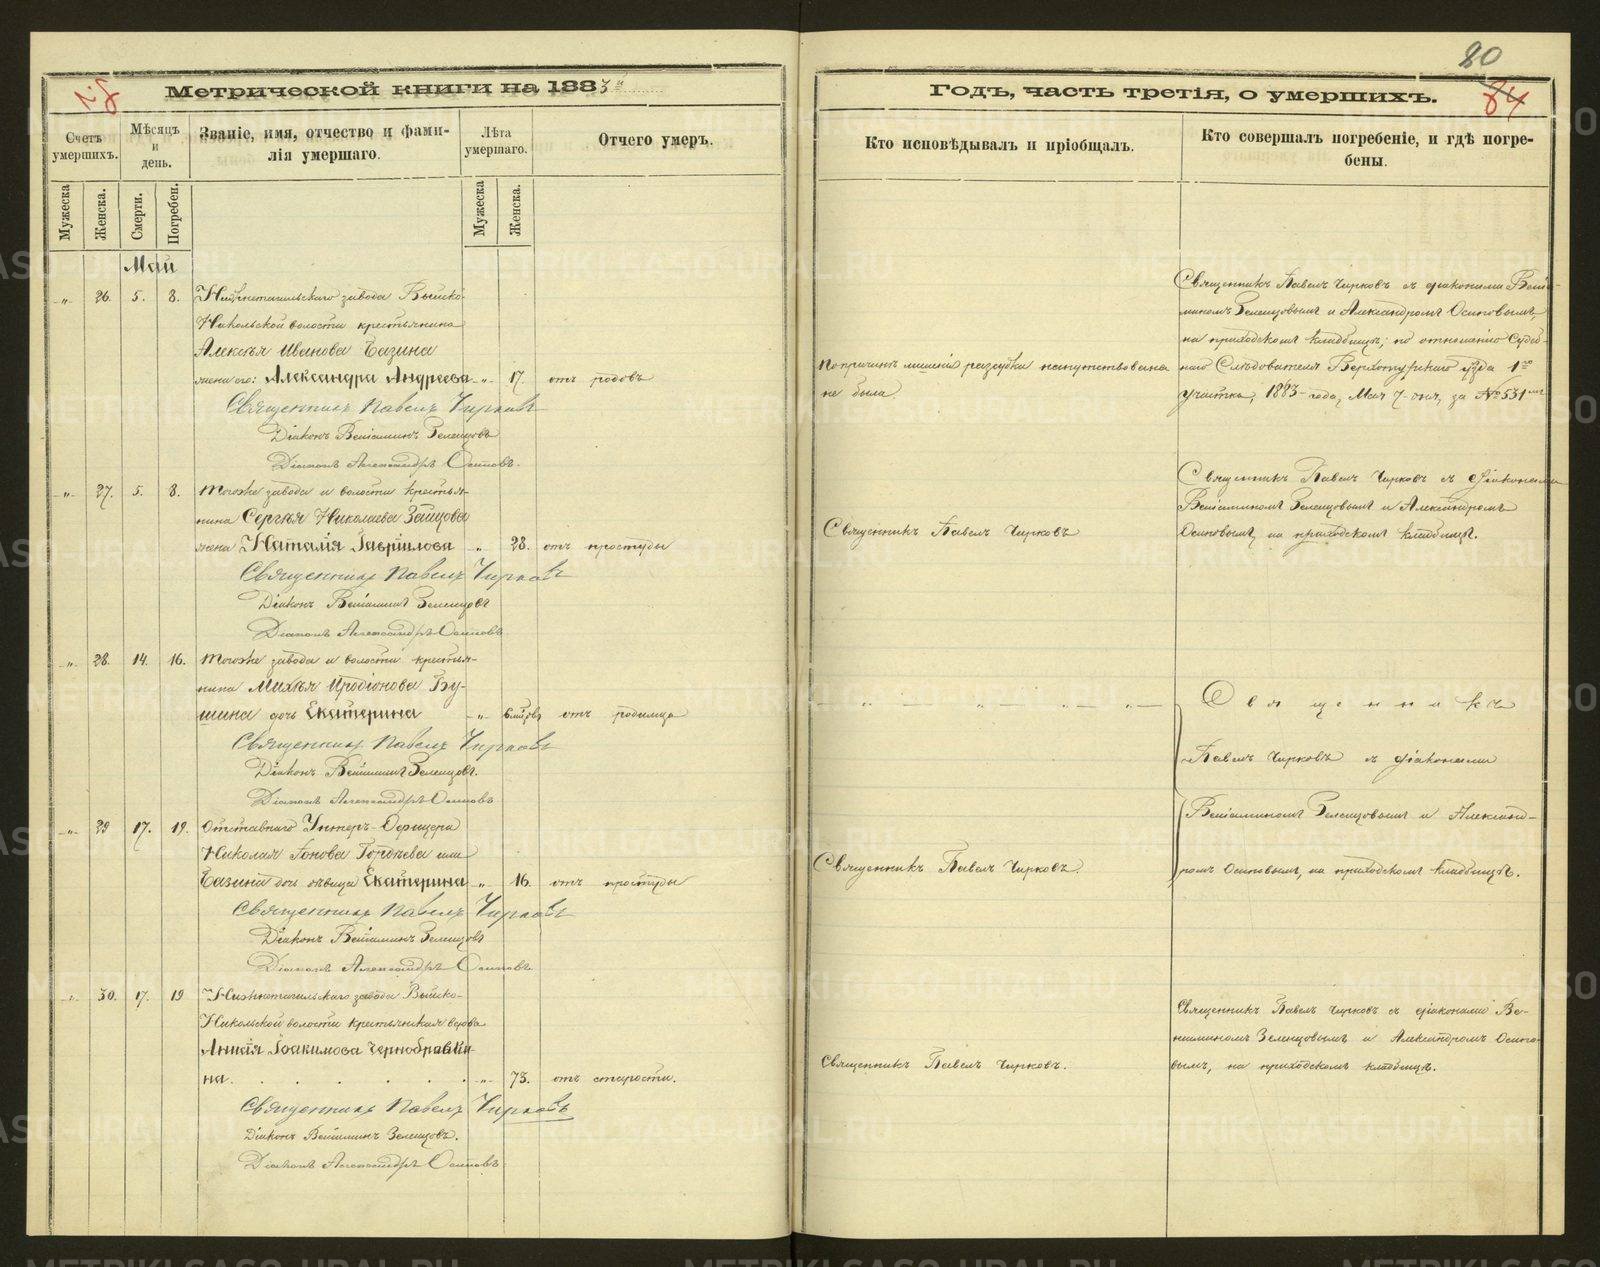 Метрической книги на 1883й
Счетъ умершихъ.
Мѣсяцъ и день.
Званіе, имя, отчество и фами-
лія умершаго.
Лѣта умершаго.
Отчего умеръ.
Мужеска
Женска.
Смерти.
Погребен.
Мужеска
Женска.
Май
„ 26. 5. 8. Нижнетагильскаго завода Выйско-
Никольской волости крестьянина
Алексѣя Иванова Базина
жена его: Александра Андреева „ 17. отъ родовъ
Священникъ Павелъ Чирковъ
Діаконъ Веніаминъ Зеленцовъ
Діаконъ Александръ Осиповъ.
„ 27. 5. 8. тогоже завода и волости крестья-
нина Сергѣя Николаева Зайцова
жена Наталія Гавріилова „ 28. отъ простуды
Священникъ Павелъ Чирковъ
Діаконъ Веніаминъ Зеленцовъ
Діаконъ Александръ Осиповъ
„ 28. 14. 16. тогоже завода и волости крестья-
нина Михѣя Иродіонова Бу-
шина дочь Екатерина „ отъ родимца
Священникъ Павелъ Чирковъ
Діаконъ Веніаминъ Зеленцовъ.
Діаконъ Александръ Осиповъ
„ 29 17. 19. Отставнаго Унтеръ-Офицера
Николая Гордѣева или
Базина дочь дѣвица Екатерина „ 16. отъ простуды
Священникъ Павелъ Чирковъ
Діаконъ Веніаминъ Зеленцовъ
Діаконъ Александръ Осиповъ.
„ 30. 17. 19 Нижнетагильскаго завода Выйско-
Никольской волости крестьянская вдова
Анисія Іоакимова Чернобравки-
на. „ 73. отъ старости.
Священникъ Павелъ Чирковъ
Діаконъ Веніаминъ Зеленцовъ.
Діаконъ Александръ Осиповъ.
80
84
Годъ, часть третія, о умершихъ.
Кто исповѣдывалъ и пріобщалъ.
Кто совершалъ погребеніе, и гдѣ погре-
бены.
По причинѣ лишенія разсудка напутствована
не была.
Священникъ Павелъ Чирковъ съ діаконами Вені-
аминомъ Зеленцовымъ и Александромъ Осиповымъ,
на приходскомъ кладбищѣ; по отношенію Судеб-
наго Слѣдователя Верхотурскаго уѣзда 1го
участка, 1883 года, Мая 7 дня, за № 531мъ
Священникъ Павелъ Чирковъ
Священникъ Павелъ Чирковъ съ діаконами
Веніаминомъ Зеленцовымъ и Александромъ
Осиповымъ, на приходскомъ кладбищѣ.
„ „ „ „ „ „
Священникъ
Павелъ Чирковъ съ діаконами
Веніаминомъ Зеленцовымъ и Александ-
ромъ Осиповымъ, на приходскомъ кладбищѣ.
Священникъ Павелъ Чирковъ.
Священникъ Павелъ Чирковъ.
Священникъ Павелъ Чирковъ съ діаконами Ве-
ніаминомъ Зеленцовымъ и Александромъ Осипо-
вымъ, на приходскомъ кладбищѣ.
METRIKI.GASO-URAL.RU